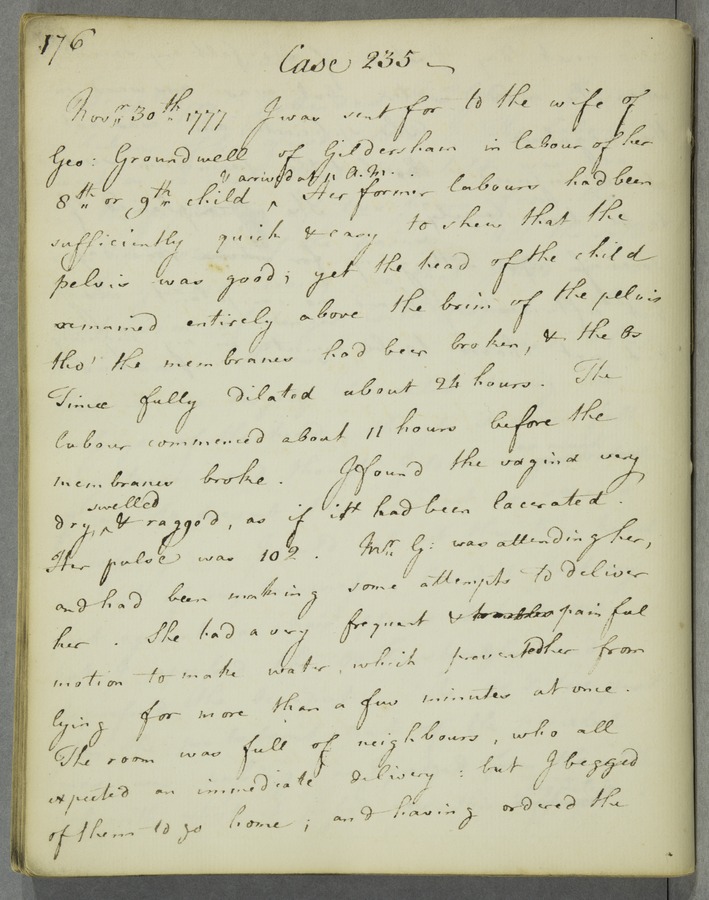 176
Case 235
Novr. 30th 1777 I was sent for to the wife of
Geo: Groundwell of Gildersham in labour of her
& arrived at 11 A.M.
8th or 9th child ^ Her former labours had been
sufficiently quick & easy to shew that the
pelvis was good; yet the head of the child
remained entirely above the brim of the pelvis
tho' the membranes had been broken, & the Os
Tincæ fully dilated about 24 hours. The
labour commenced about 11 hours before the
membranes broke. I found the vagina very
swelled
dry, ^ & ragged, as if it had been lacerated.
Her pulse was 102. Mr. G: was attending her,
and had been making some attempts to deliver
her. She had a very frequent & painful
motion to make water, which prevented her from
lying for more than a few minutes at once.
The room was full of neighbours, who all
expected an immediate delivery: but I begged
of them to go home; and having ordered the